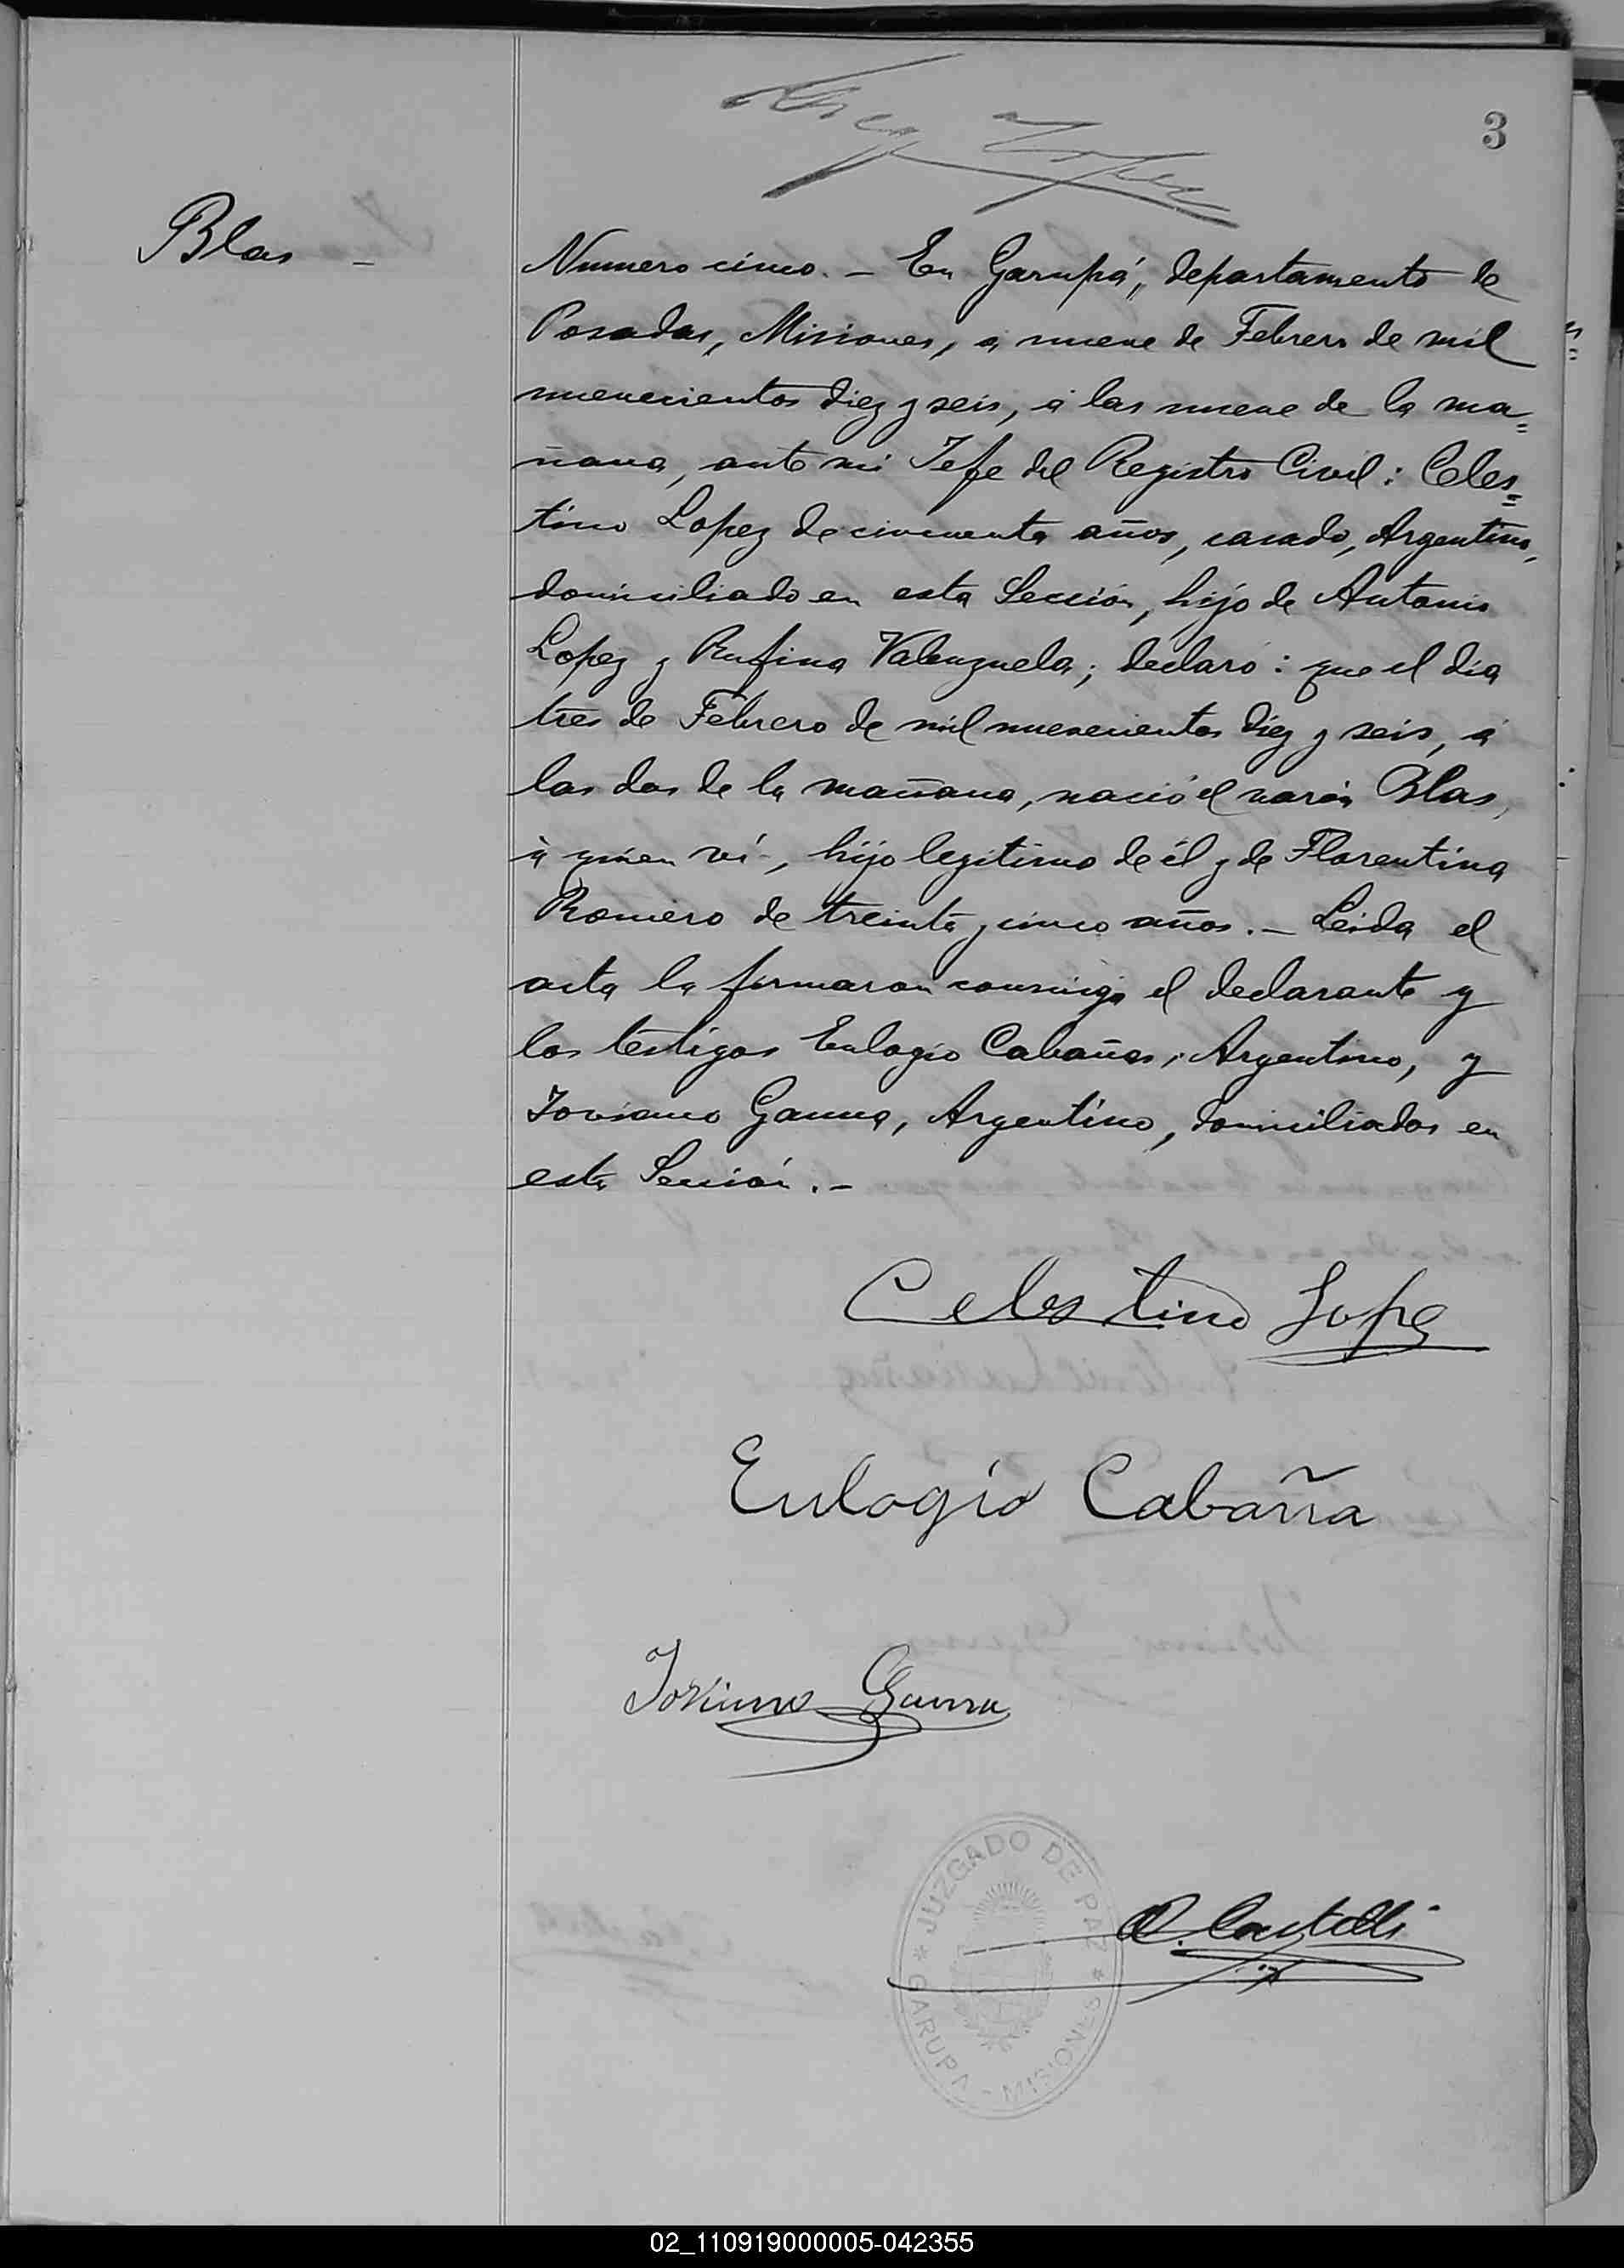 3
Blas -
Numero cinco. - En Garupá, departamento de
Posadas, Misiones, á nueve de Febrero de mil
nuevecientos diez y seis, á las nueve de la ma=
ñana, ante mi Jefe del Registro Civil: Celes=
tino Lopez de cincuenta años, casado, Argentino,
domiciliado en esta Sección, hijo de Antonio
Lopez y Rufina Valenzuela; declaró: que el dia
tres de Febrero de mil nuevecientos diez y seis, á
las dos de la mañana, nació el varón Blas,
á quien ví -, hijo legitimo de él y de Florentina
Romero de treinta y cinco años. - Leida el
acta la firmaron conmigo el declarante y
los testigos Eulogio Cabañas, Argentino, y
Joviano Gauna, Argentino, domiciliados en
esta Sección. -
Celestino Lope
Eulogio Cabaña
Joviano Gauna
JUZGADO DE PAZ * GARUPA - MISIONES *
Castelli
02_110919000005-042355